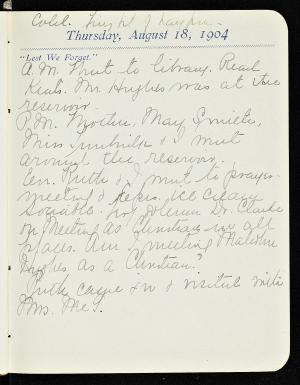 Cold.
Thursday, August 18, 1904
"Lest We Forget."
A.M. Went to library. Read
Keats. Mr Hughes was at the
reservoir.
P.M. Mother, May Smith,
Miss & I went
around the reservoir.
Eve. Ruth & I went to prayer
meeting & ice cream
sociable. Dr. Clarke
on meeting as Christians in all
places. Am I meeting Malcolm
Hughes as a Christian?
Ruth came in & visited with
Mrs. McI.